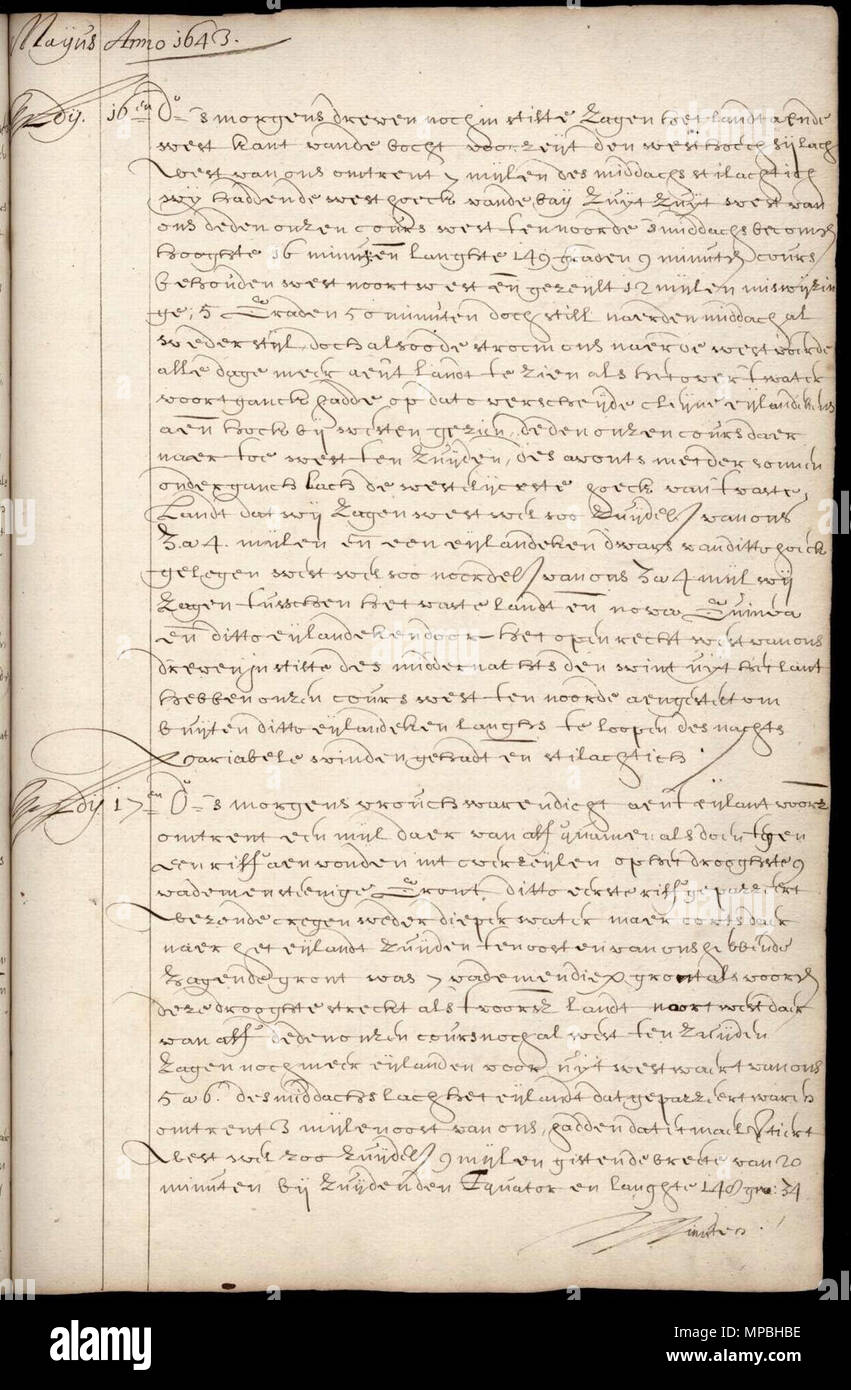 Maijus Anno 1643.
Adij. 16en do 's morgens dreven noch in stilte zagen het landt aende
west kant vande bocht voorzeijt den west hoeck lach
west van ons omtrent 7 mijlen des middachs stilachtich
wij hadden de west hoeck vande baij zuijt zuijt west van
ons deden onzen cours west ten noorde 's middachs becomen
hooghte 56 minuten langhte 149 graden 9 minuten cours
behouden west noort west en gezeijlt 12 mijlen miswijzin
ge, 5 Graden 50 minuten doch still naer den middach al
weder stijl, doch alsoo de stroom ons naer de westwaerde
alle dage meer aent landt te zien als het over twater
voortganck hadde op dato verscheijde cleijne eijlandekens
aen hoeck bij westen gezien, deden onzen cours daer
naer toe west ten zuijden, des avonts met der sonnen
onderganch lach de westelijcxste hoeck van 't vaste
Landt dat wij zagen west wel soo zuijdel van ons
3 a 4. mijlen en een eijlandeken dwars van ditto hoeck
gelegen west wel soo noordel van ons 3 a 4 mijl wij
zagen tusschen het vaste landt en nova Guinea
en ditto eijlandeken door het open recht west van ons
dreven in stilte des middernachts den wint uijt het lant
hebben onzen cours west ten noorde aengestelt om
buijten ditto eijlandeken langhs te loopen des nachts
variabele winden gehadt en stilachtich
Adij 17en do 's morgens vrouch waren dicht aent eijlant voorz
omtrent een mijl daer van aff quamen als doen tegen
een riff aen vonden int overzeijlen op het drooghste 9
vademen stenige Gront, ditto eerste riff gepasseert
wezende cregen weder dieper water maer corts daer
naer het eijlandt zuijden ten oosten van ons hebbende
zagen de gront was 7 vademen diep gront als vooren
deze drooghte streckt als 't voorsz landt noortwest daer
van aff deden onzen cours noch al west ten zuijden
zagen noch meer eijlanden voor uijt west waert van ons
5 a 6. des middachs lach het eijlandt dat gepasseert waren
omtrent 3 mijlen oost van ons, hadden dat etmael
west wel zoo zuijdel 9 mijlen gistende breete van 20
minuten bij zuijden den Equator en langhte 148 gra: 34
Minuten.
alamy
Image ID: MPBHBE
www.alamy.com